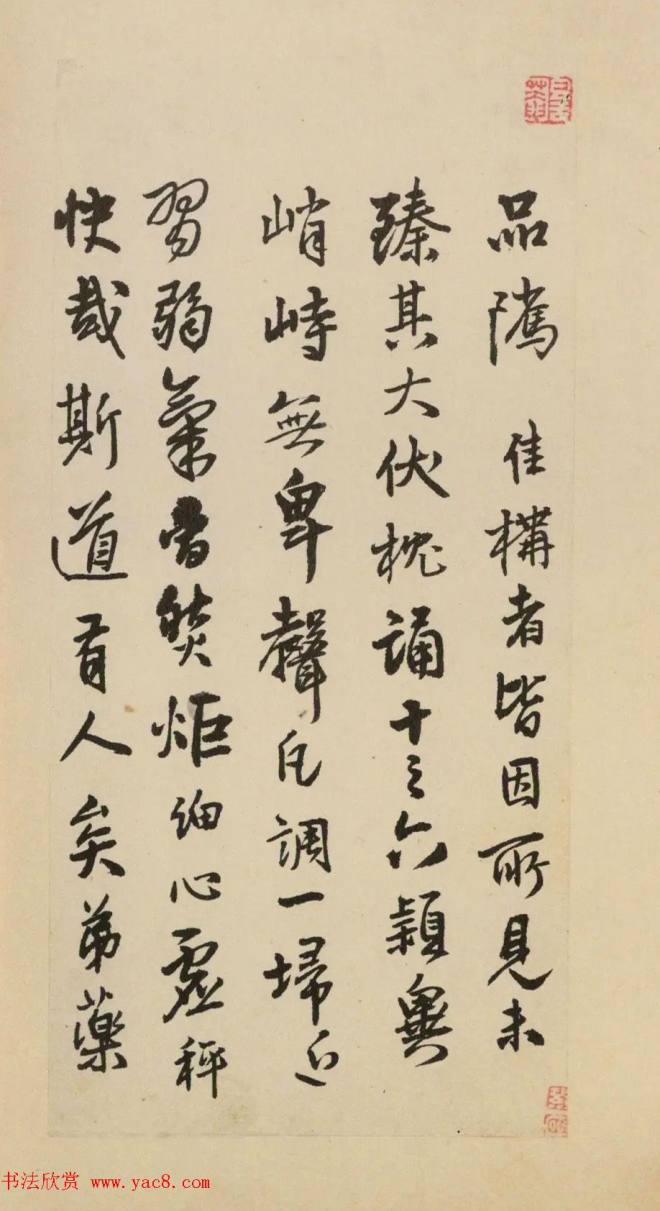 品隲 佳構者皆因所見未
臻其大伏枕誦十之六穎異
峭峙無卑聲凡調一埽近
習弱氣當焚炬細心虛秤
快哉斯道有人矣弟藥
书法欣赏 www.yac8.com